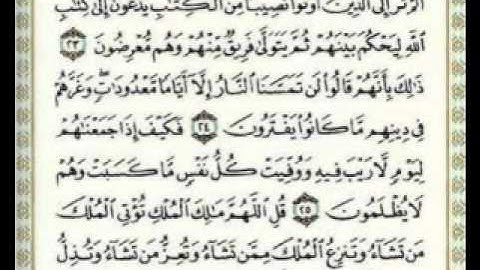 أَلَمْ تَرَ إِلَى الَّذِينَ أُوتُوا نَصِيبًا مِنَ الْكِتَٰبِ يُدْعَوْنَ إِلَىٰ كِتَٰبِ
اللَّهِ لِيَحْكُمَ بَيْنَهُمْ ثُمَّ يَتَوَلَّىٰ فَرِيقٌ مِنْهُمْ وَهُمْ مُعْرِضُونَ ٢٣
ذَٰلِكَ بِأَنَّهُمْ قَالُوا لَنْ تَمَسَّنَا النَّارُ إِلَّا أَيَّامًا مَعْدُودَاتٍ وَغَرَّهُمْ
فِي دِينِهِمْ مَا كَانُوا يَفْتَرُونَ ٢٤ فَكَيْفَ إِذَا جَمَعْنَاهُمْ
لِيَوْمٍ لَا رَيْبَ فِيهِ وَوُفِّيَتْ كُلُّ نَفْسٍ مَا كَسَبَتْ وَهُمْ
لَا يُظْلَمُونَ ٢٥ قُلِ اللَّهُمَّ مَالِكَ الْمُلْكِ تُؤْتِي الْمُلْكَ
مَنْ تَشَاءُ وَتَنْزِعُ الْمُلْكَ مِمَّنْ تَشَاءُ وَتُعِزُّ مَنْ تَشَاءُ وَتُذِلُّ